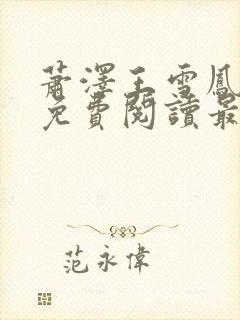 蕭澤王雪鳳
免費閱讀最
范永偉